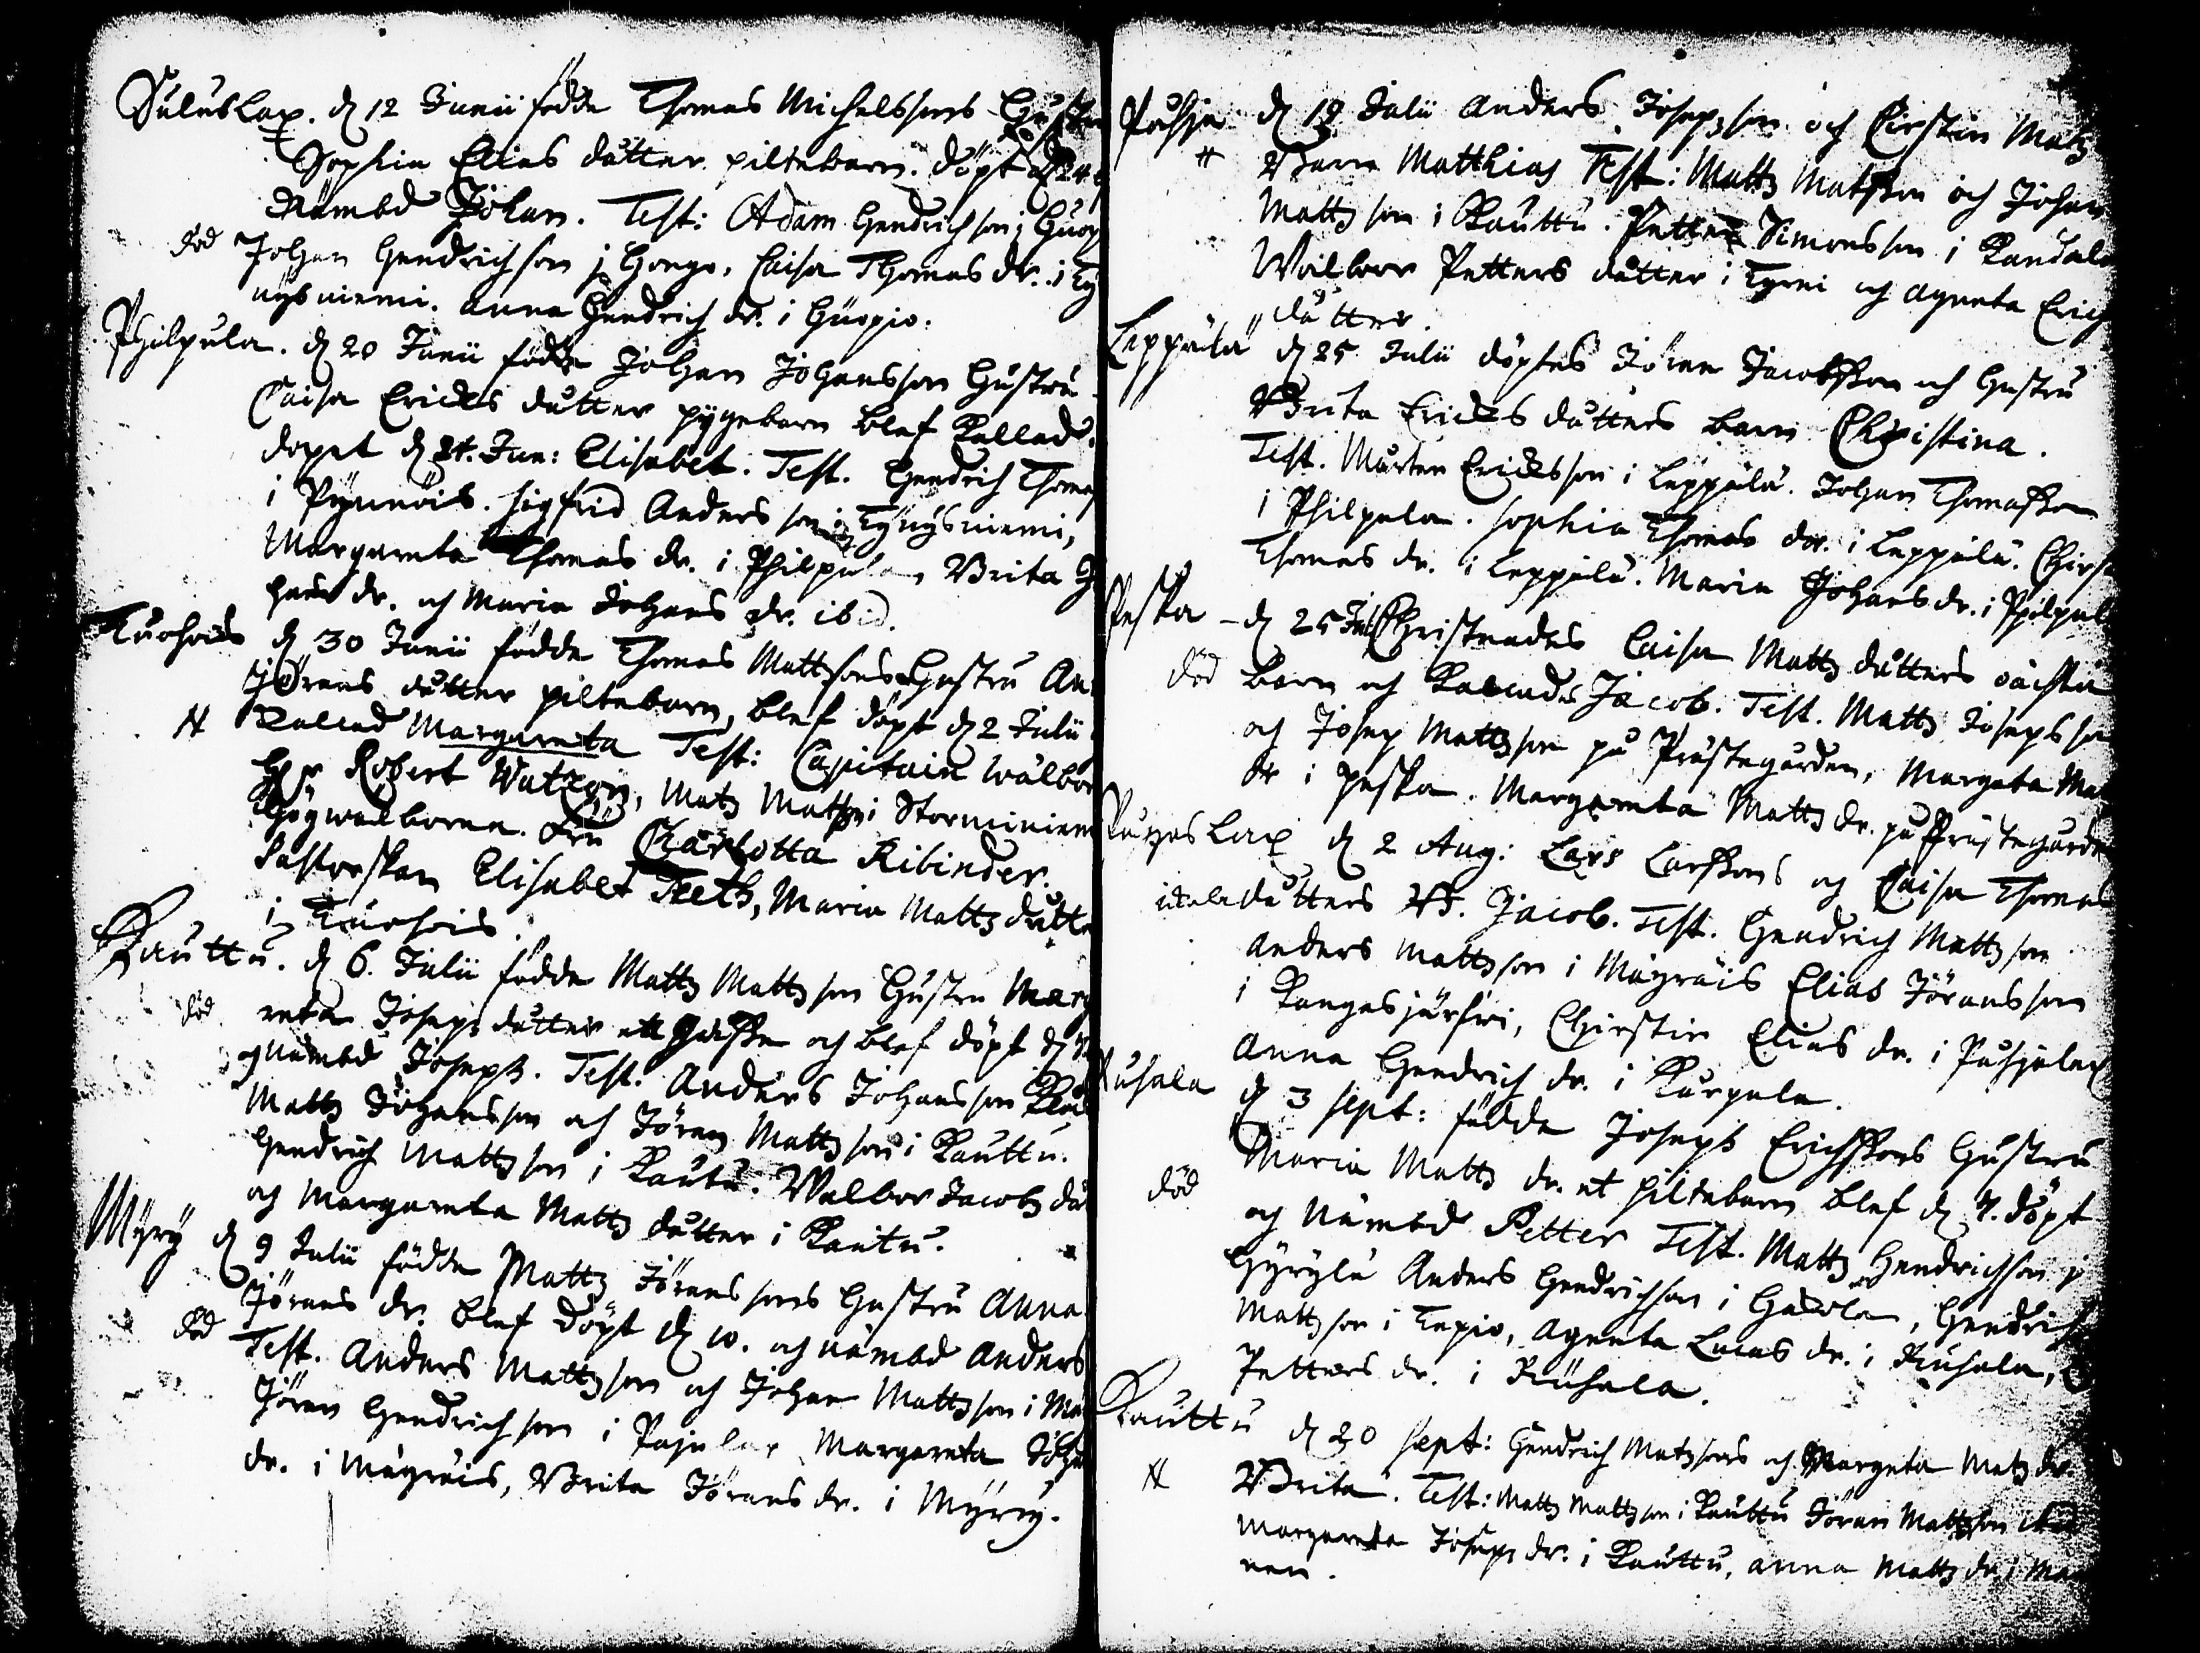 Suluslax. d 12 Junii födde Thomas Michelssons Gustru
Sophia Elias dåtter piltebarn. döpt d 24
Nämbd Johan. Test: Adam Hendrichson i Guop
död Johan Hendrichson i Hongo, Caisa Thomas dr. i Ty
nysniemi. Anna Hendrich dr. i Guopio.
Philpula. d 20 Junii födde Johan Johansson Hustru
Caisa Ericks dåtter pygebarn blef kallad
dopet d 24. Jun: Elisabet. Test. Hendrich Thomas
i Pynnöis. Sigfrid Anders son i Tynysniemi,
Margareta Thomas dr. i Philpula, Brita J
hans dr. och Maria Johans dr. ibid.
d 30 Junii födde Thomas Mattssons Hustru An
Jörans dåtter piltebarn, blef döpt d 2 Julii
N kallad Margareta Test: Capitain wälbor
Hr Robert Watzon, Matz Matts i Storminiem
Högwälborna. Fru Charlotta Ribinder.
Elisabet Teetz, Maria Matts dåtte
i
Kauttu. d 6. Julii födde Matts Mattson Hustru Marg
död reta Joseps dåtter ett och blef döpt d
och nämbd Joseph. Test: Anders Johansson
Matts Johansson och Jöran Mattsson i Kauttu.
Hendrich Mattsson i Kautu. Walbor Jacobs då
och Margareta Matts dåtter i Kautu.
Myry d 9 Julii födde Matts Jöranssons Hustru Anna
Jörans dr. blef döpt d 10. och nämbd Anders
död Test. Anders Mattsson och Johan Mattsson i
Jöran Hendrichson i Pajulax Margareta Joha
dr. i Mägräis, Brita Jörans dr. i Myry.
d 19 Julii Anders Josepsson och Cirstin Matz
N Barn Matthias Test: Matts Matsson och Johan
Mattsson i Kauttu. Petter Simonsson i Kandola
Walbor Petters dåtter i Tyrni och Agneta Erich
dåtter.
Leppälä d 25 Julii döptes Jöran Jacobsson och Hustru
Brita Ericks dåtters barn Christina.
Test. Mårten Ericksson i Leppälä. Johan Thomasson
i Philpula. Sophia Thomas dr. i Leppälä. Chirst
Thomas dr. i Leppälä. Maria Johans dr. i Philpul
Peska - d 25 Jul Christnades Caisa Matts dåtters oächta
död barn och kallades Jacob. Test. Matts Josepsson
och Josep Mattsson på Prästegården, Margeta
dr i Peska. Margareta Matts dr. på Prästegårde
d 2 Aug: Lars Larssons och Caisa Thomas
dåtters B. Jacob. Test. Hendrich Mattsson
Anders Mattsson i Mägräis Elias Jöransson
i Kangasjärfwi, Chirstin Elias dr. i
Anna Hendrich dr. i Kurpula.
d 3 Sept: födde Joseph Erichssons Hustru
Maria Matts dr. et piltebarn blef d 4. döpt
död och nämbd Petter Test. Matts Hendrichson i
Hyrylä Anders Hendrichson i , Hendrich
Mattsson i Tepio, Agneta Lucas dr. i Ruhala,
Petters dr. i Ruhala.
Kauttu d 20 Sept: Hendrich Matssons och Margeta Mats dr.
N Brita. Test: Matts Mattsson i Kauttu Jöran Mattsson ibid
Margareta Joseps dr. i Kauttu, Anna Matts dr. i
nen.